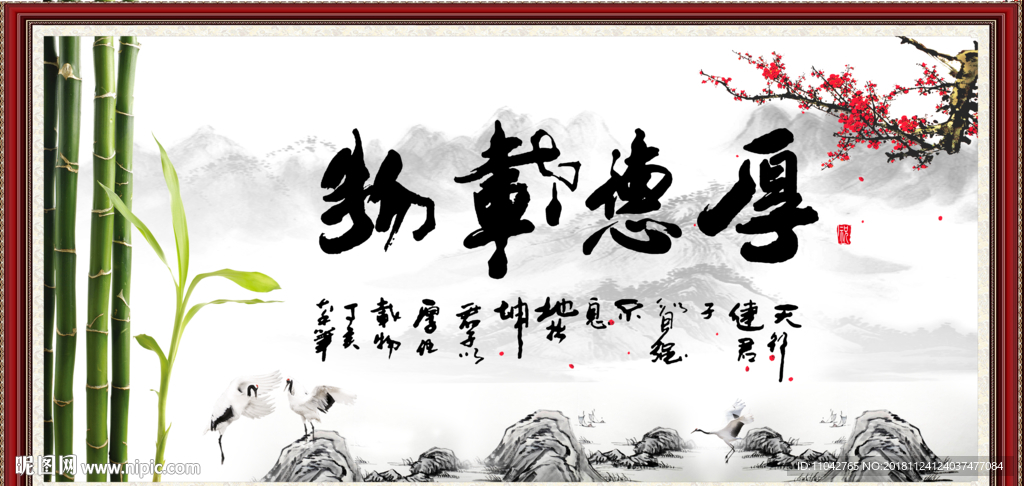 厚德載物
天行
健君
子
以自强
不
息
地势
坤
君子以
厚德
載物
丁亥
昵图网 www.nipic.com
ID:11042765 NO:20181124124037477084